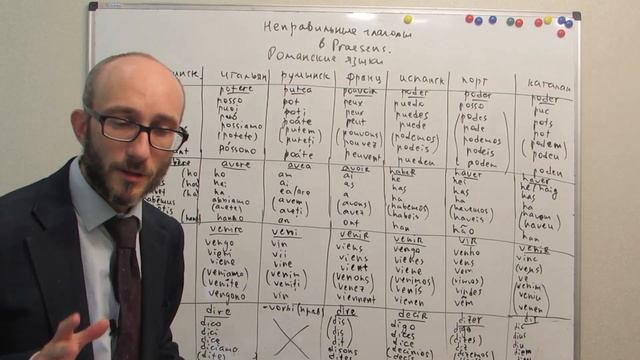 Неправильные глаголы
в Praesens.
Романские языки
итальян румынск франц испанск порт каталан
potere putea pouvoir poder poder poder
posso pot peux puedo posso puc
puoi poți peux puedes podes pots
può poate peut puede pode pot
possiamo (putem) (pouvons) (podemos) podemos (podem)
(potete) puteți) pouvez) podeis) podeis podeu
possono poate peuvent pueden podem poden
avere avea avoir haber haver haver
ho am ai he hei he/haig
hai ai as has has has
ha ea/are a ha ha ha
abbiamo (avem) (avons) (habemos) (havemos) (havem)
(avete) aveți) avez) habeis) haveis) haveu)
hanno ont han hão han
venire veni venir venir vir venir
vengo vin viens vengo venho vinc
vieni vii viens vienes vens vens
viene vine vient viene vem ve
(veniamo) (venim) (venons) (venimos) vimos (venim)
(venite) veniți) venez) venis) vindes veniu
vengono vin viennent vienen vêm venen
dire - dire decir dizer dir
dico dis digo digo
dici dis dices
dice dit dice
diciamo disons (decimos)